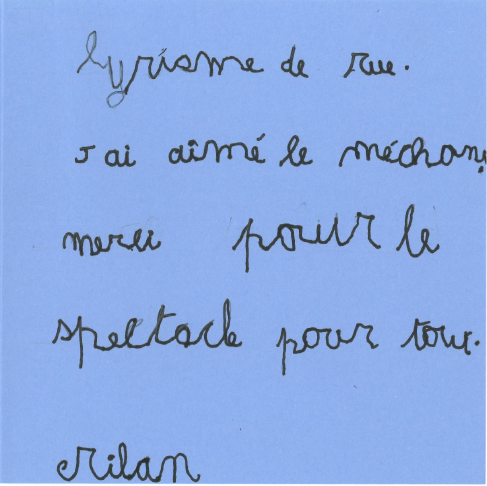 lyrisme de rue.
J'ai aimé le méchant.
merci pour le
spectacle pour tous.
Milan